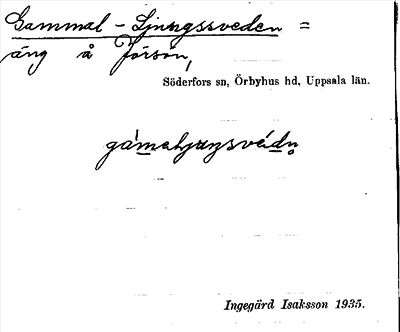 Gammal-Ljungssveden =
äng å Jörsön,
Söderfors sn, Örbyhus hd, Uppsala län.
Ingegärd Isaksson 1935.